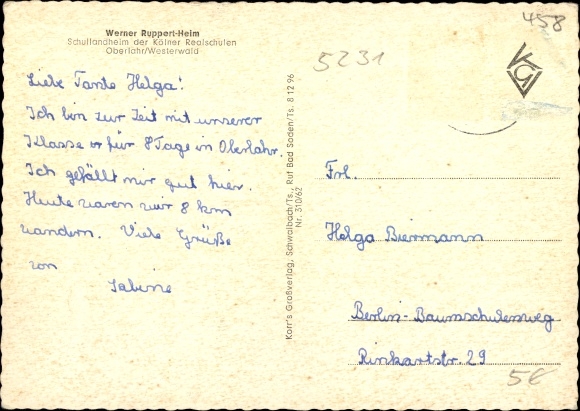 Werner Ruppert-Heim
Schullandheim der Kölner Realschulen
Oberlahr/Westerwald
Liebe Tante Helga!
Ich bin zur Zeit mit unserer
Klasse für 8 Tage in Oberlahr.
Ich gefällt mir gut hier.
Heute waren wir 8 km
wandern. Viele Grüße
von
Sabine
Korr's Großverlag, Schwalbach/Ts., Ruf Bad Soden/Ts. 8 12 96
Nr. 310/62
5231
458
KGV
Frl.
Helga Biermann
Berlin-Baumschulenweg
Rinkartstr. 29
5€